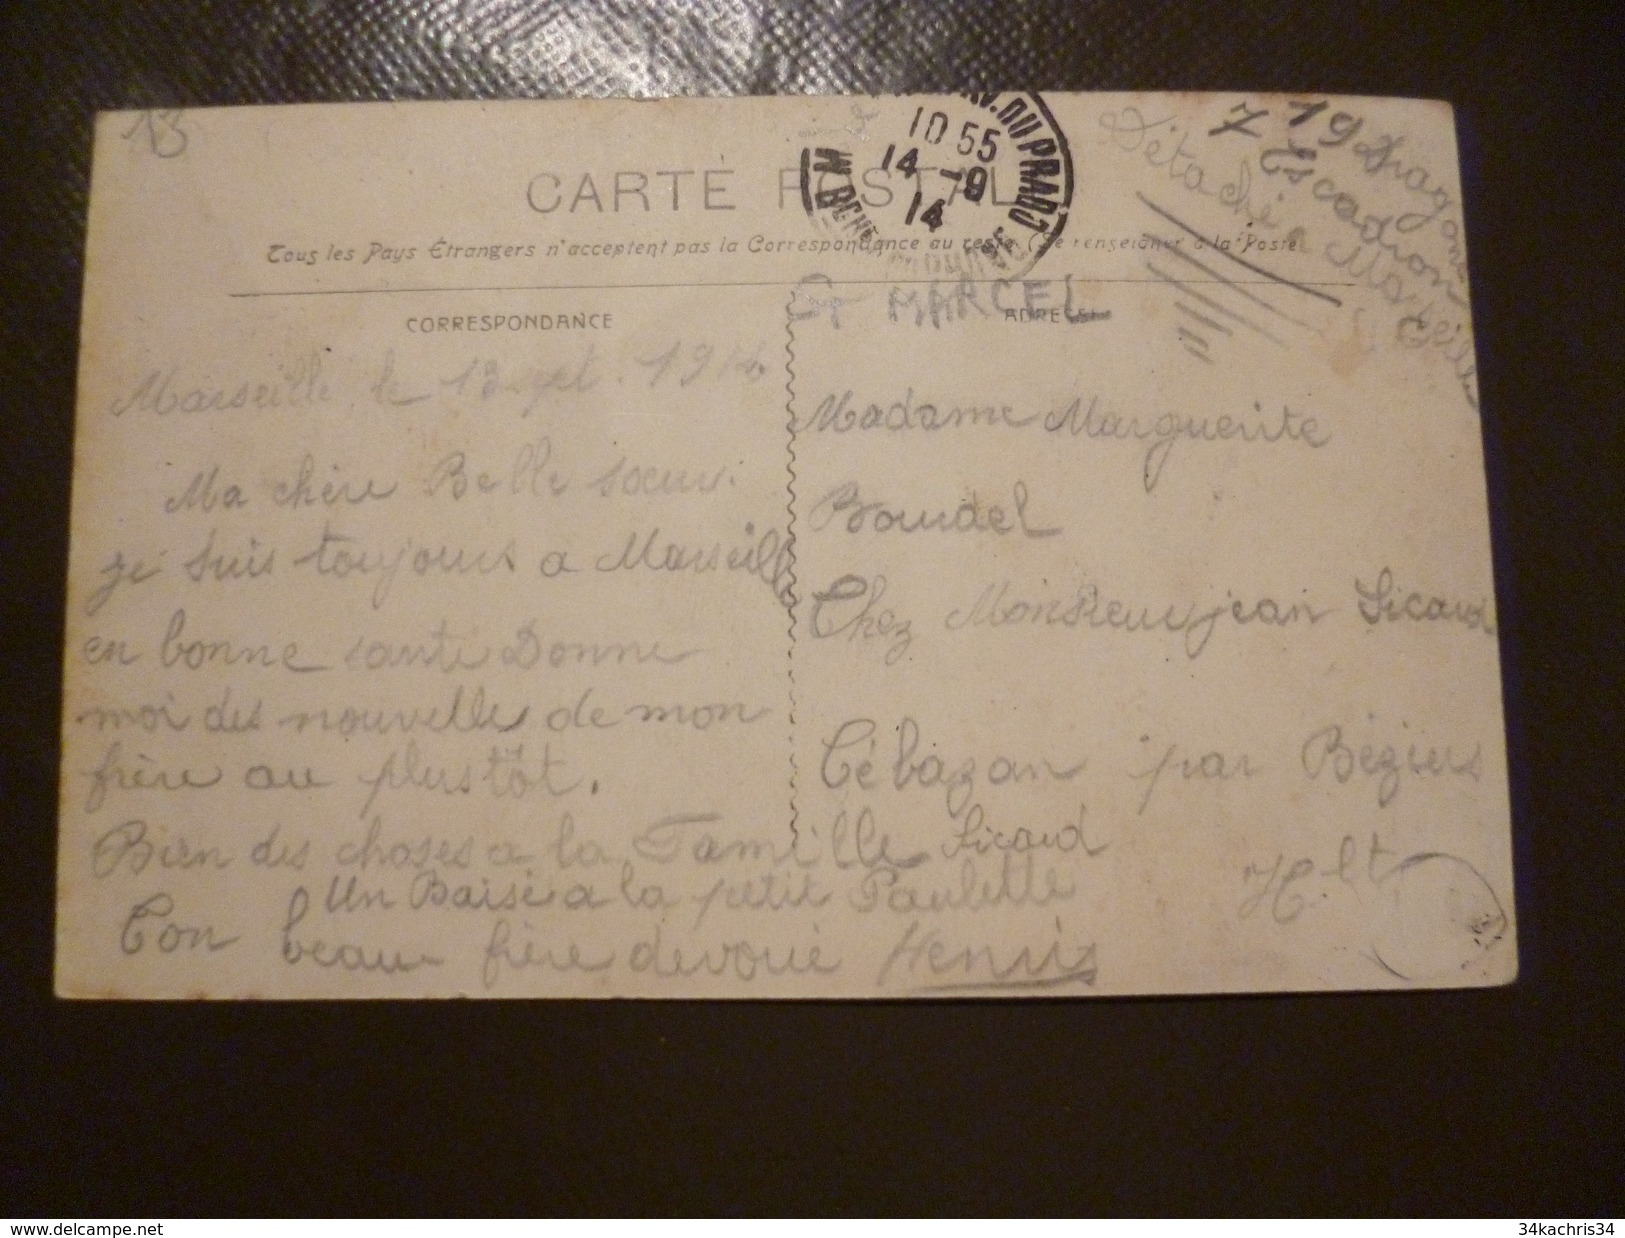 13
19 Dragons
7 Escadron
Détaché a Marseille
AV. DU PRADO
10 55
14 -9
14
CARTE POSTALE
Tous les Pays Étrangers n'acceptent pas la Correspondance au recto (Se renseigner à la Poste
St MARCEL
CORRESPONDANCE
ADRESSE
Marseille le 13 sept. 1914
Ma chère Belle sœur.
je suis toujours a Marseille
en bonne santé Donne
moi des nouvelles de mon
frère au plustôt.
Bien des choses a la Famille Sicard
Un Baisé a la petit Paulette
Ton beau frère devoué Henris
Madame Marguerite
Baudel
Chez Monsieur jean Sicard
Cébazan par Béziers
Hlt
www.delcampe.net
34kachris34